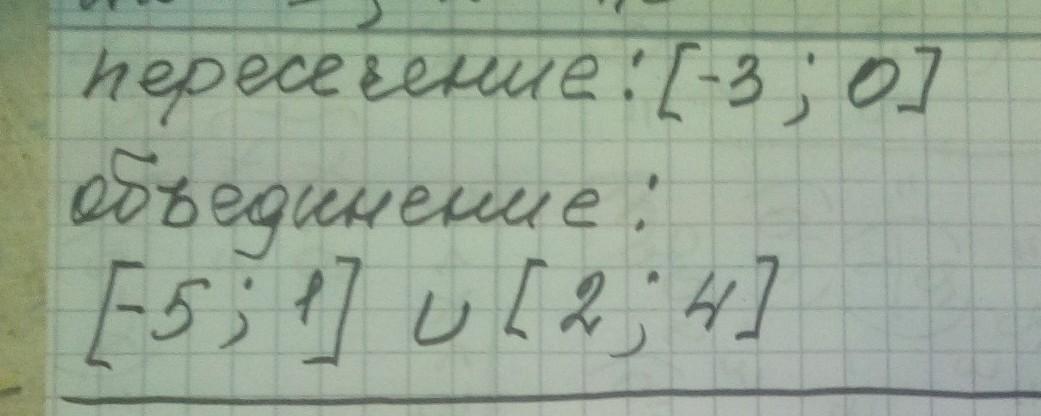 пересечение: [-3; 0]
объединение:
[-5; 1] ∪ [2; 4]